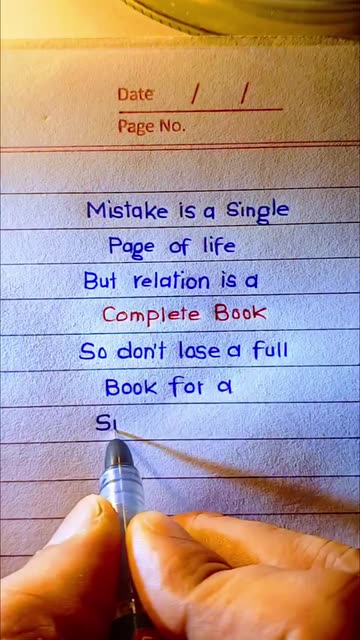 Date / /
Page No.
Mistake is a Single
Page of life
But relation is a
Complete Book
So don't lose a full
Book for a
Si